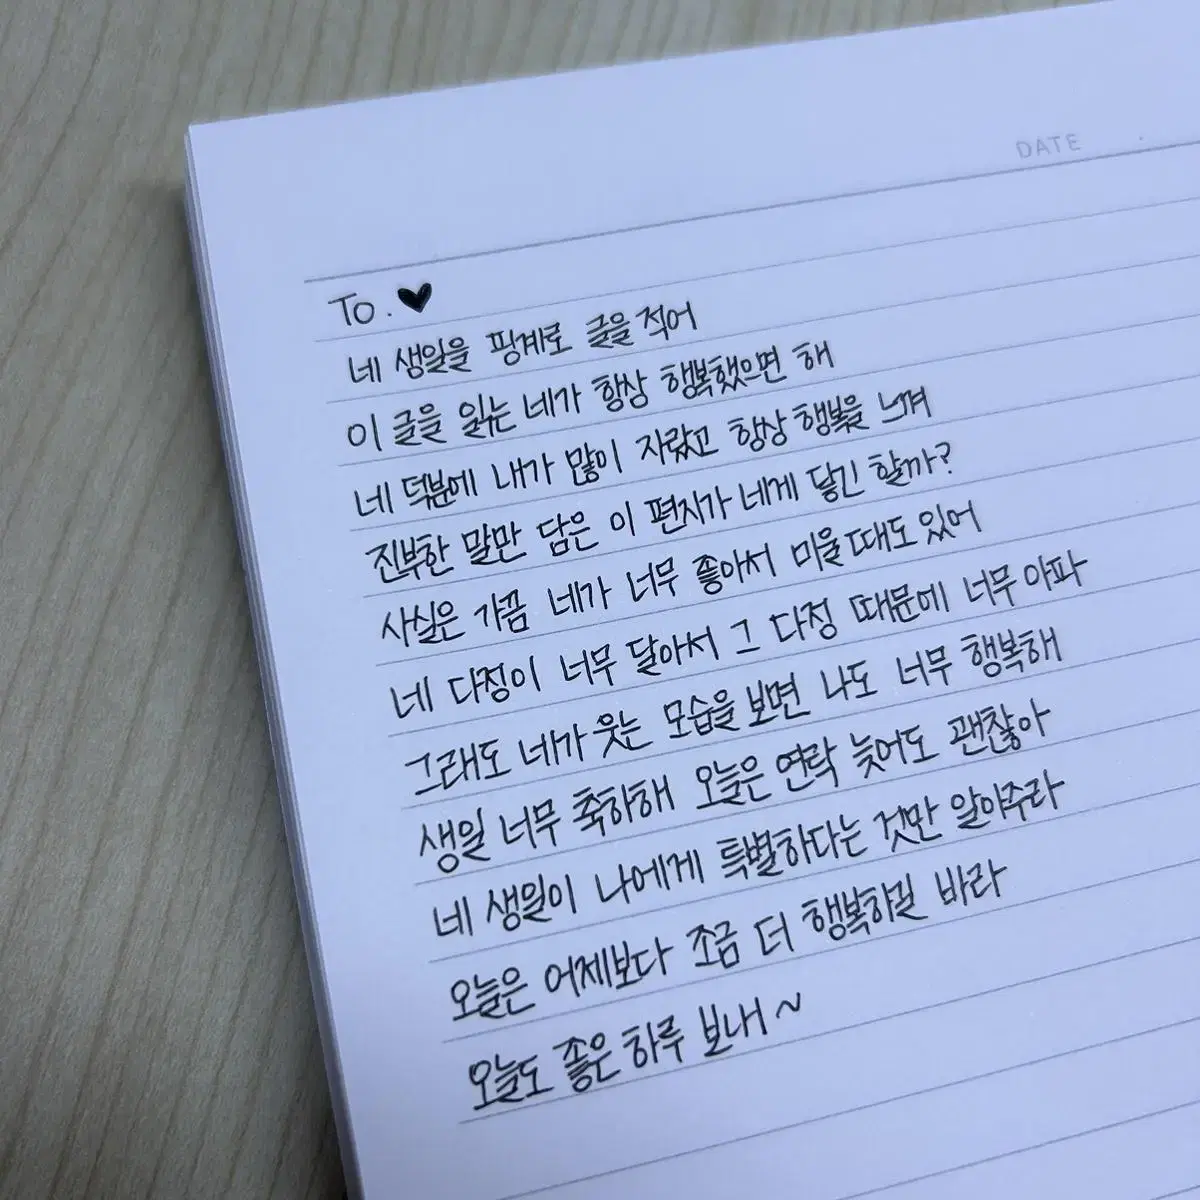 DATE
To. ♥
네 생일을 핑계로 글을 적어
이 글을 읽는 네가 항상 행복했으면 해
네 덕분에 내가 많이 자랐고 항상 행복을 느껴
진부한 말만 담은 이 편지가 네게 닿긴 할까?
사실은 가끔 네가 너무 좋아서 미울 때도 있어
네 다정이 너무 달아서 그 다정 때문에 너무 아파
그래도 네가 웃는 모습을 보면 나도 너무 행복해
생일 너무 축하해 오늘은 연락 늦어도 괜찮아
네 생일이 나에게 특별하다는 것만 알아주라
오늘은 어제보다 조금 더 행복하길 바라
오늘도 좋은 하루 보내~